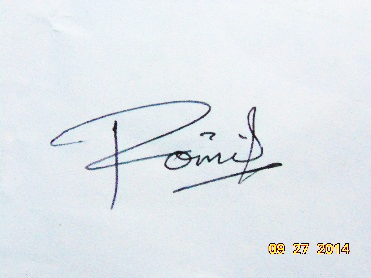 Romil
09 27 2014